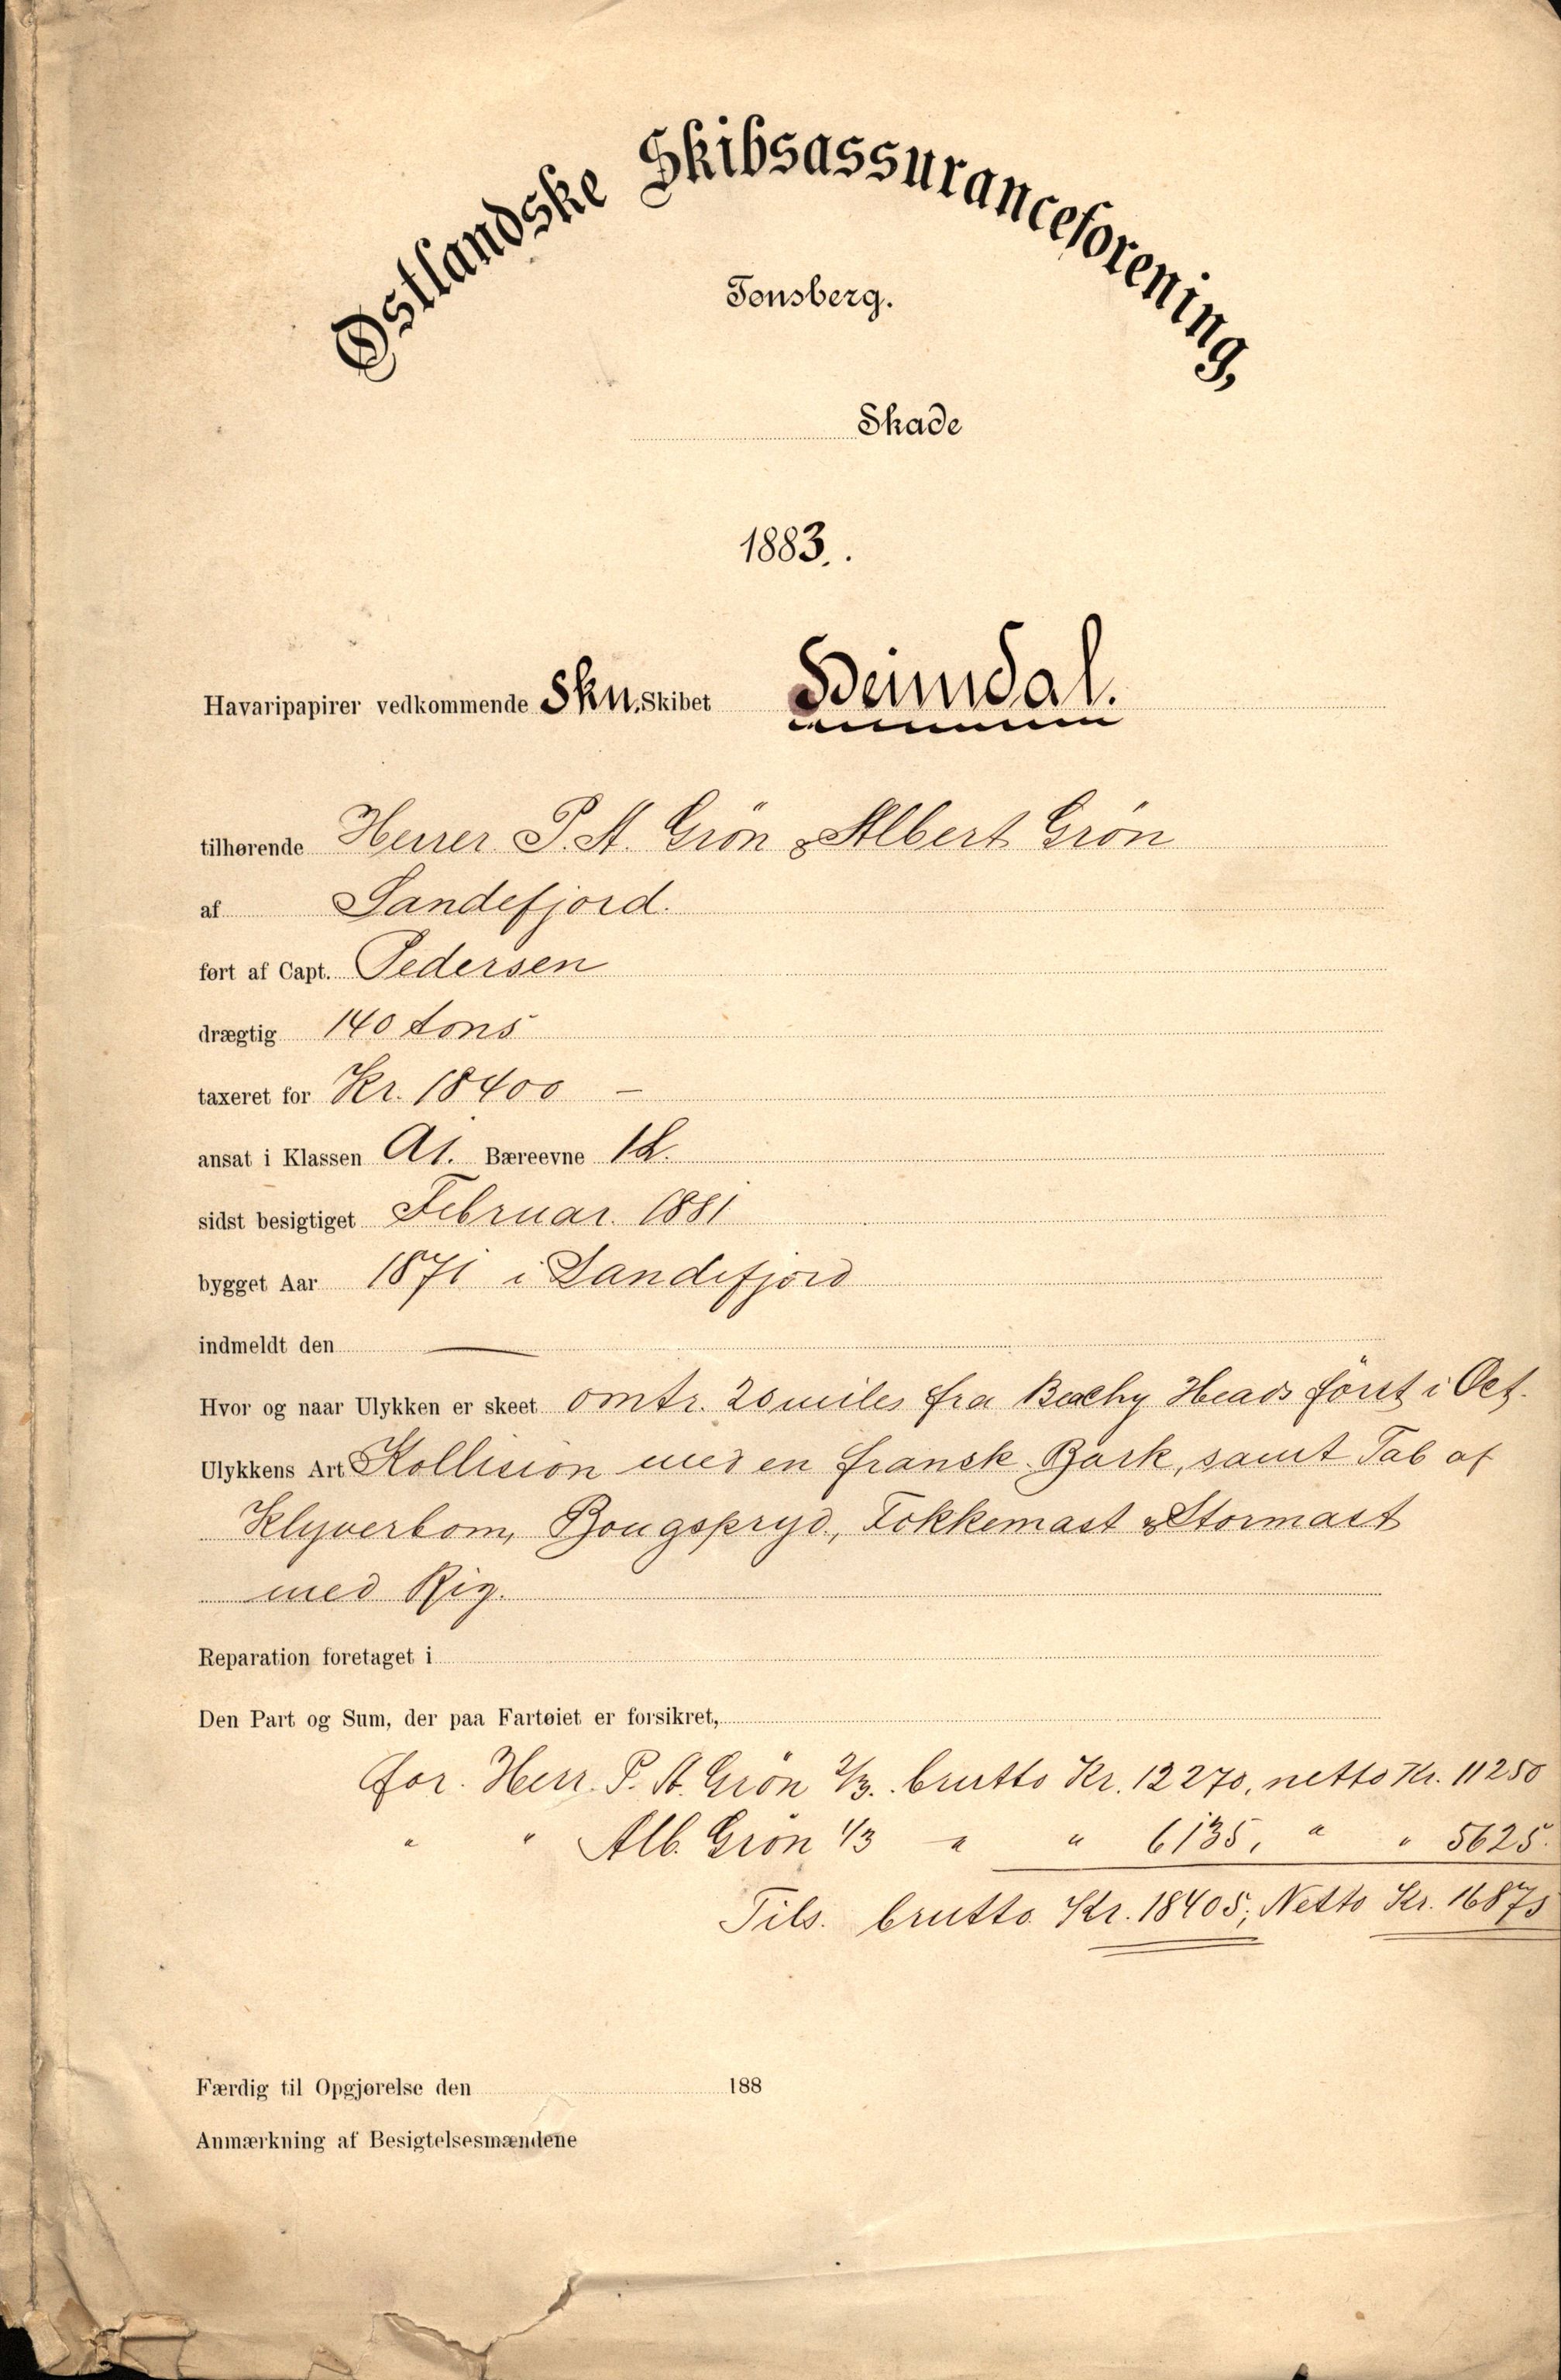 Østlandske Skibsassuranceforening,
Tønsberg.
Skade
1883..
Havaripapirer vedkommende Skn. Skibet Heimdal.
tilhørende Herrer P. A. Grön & Albert Grön
af Sandefjord.
ført af Capt. Pedersen
drægtig 140 tons
taxeret for Kr. 18400 —
ansat i Klassen A1. Bæreevne 1L.
sidst besigtiget Februar. 1881
bygget Aar 1871 i Sandefjord
indmeldt den —
Hvor og naar Ulykken er skeet omtr. 20 miles fra Beachy Heads först i Oct.
Ulykkens Art Kollision med en fransk Bark, samt Tab af
Klyverbom, Bougspryd, Fokkemast & Stormast
med Rig.
Reparation foretaget i
Den Part og Sum, der paa Fartøiet er forsikret,
for. Herr. P. A. Grön 2/3. brutto Kr. 12270, netto Kr. 11250
" " Alb. Grön 1/3 " " 6135, " " 5625.
Tils. brutto Kr. 18405; Netto Kr. 16875
Færdig til Opgjørelse den 188
Anmærkning af Besigtelsesmændene